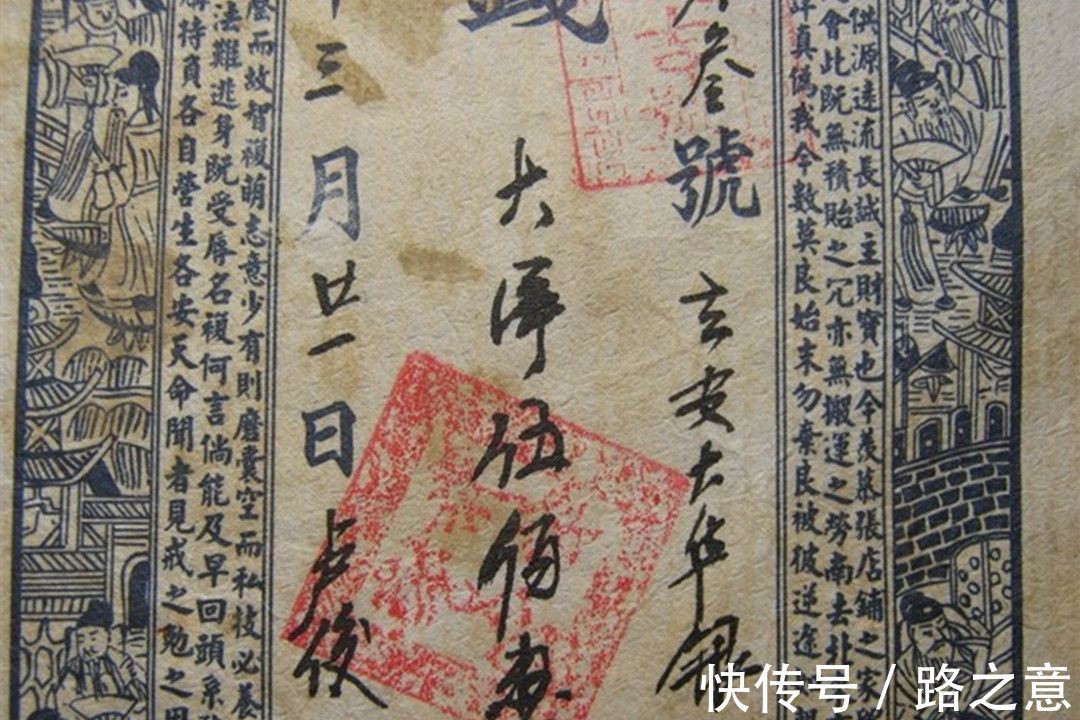 供源遠流長誠主財寶也今羨慕張店鋪之
會此既無積貽之冗亦無搬運之勞南去北
真偽我今數莫良始末勿棄良被彼逆途
叁號
大華銀
大洋伍佰
錢
三月廿一日
盧俊
而故智複萌志意少有則塵囊空而私技必養
法難逃身既受辱名複何言倘能及早回頭
持負各自營生各安天命聞者見戒之勉之
快传号 / 路之意